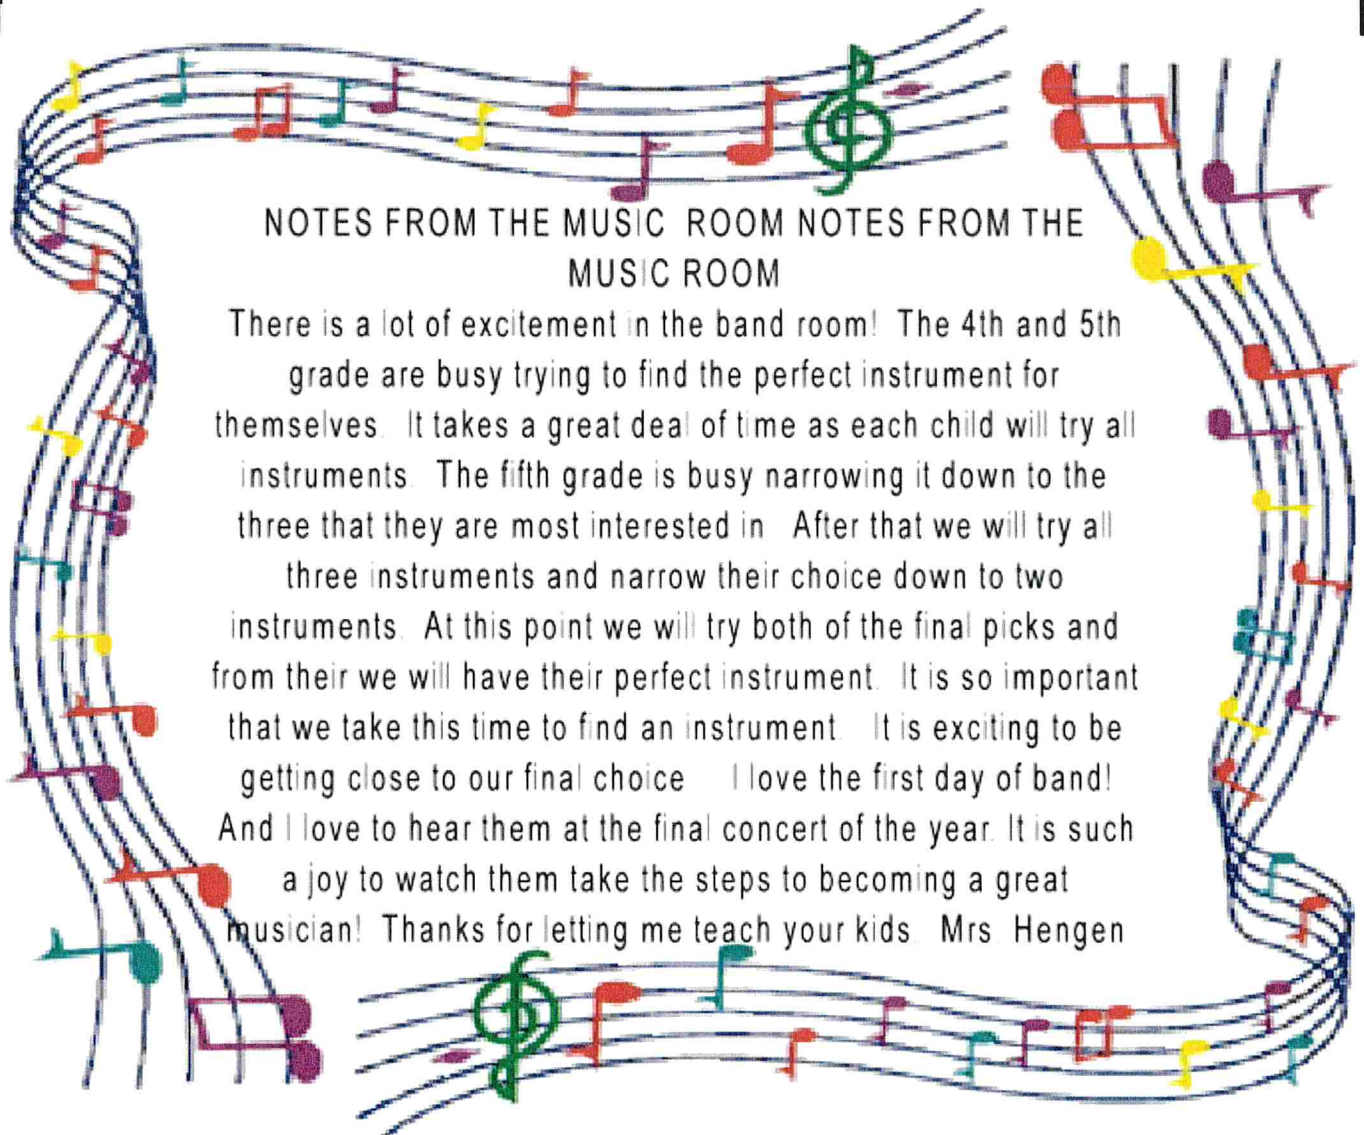 NOTES FROM THE MUSIC ROOM NOTES FROM THE
MUSIC ROOM
There is a lot of excitement in the band room! The 4th and 5th
grade are busy trying to find the perfect instrument for
themselves. It takes a great deal of time as each child will try all
instruments. The fifth grade is busy narrowing it down to the
three that they are most interested in. After that we will try all
three instruments and narrow their choice down to two
instruments. At this point we will try both of the final picks and
from their we will have their perfect instrument. It is so important
that we take this time to find an instrument. It is exciting to be
getting close to our final choice. I love the first day of band!
And I love to hear them at the final concert of the year. It is such
a joy to watch them take the steps to becoming a great
musician! Thanks for letting me teach your kids. Mrs. Hengen